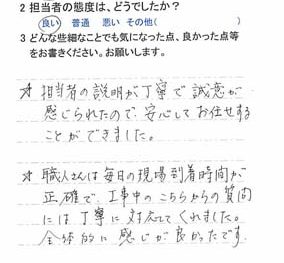 2 担当者の態度は、どうでしたか?
良い 普通 悪い その他(
3 どんな些細なことでも気になった点、良かった点等
をお書きください。お願いします。
☆ 担当者の説明が丁寧で誠意が
感じられたので、安心してお任せする
ことができました。
☆ 職人さんは毎日の現場到着時間が
正確で、工事中のこちらからの質問
には丁寧に対応してくれました。
全体的に感じが良かったです。